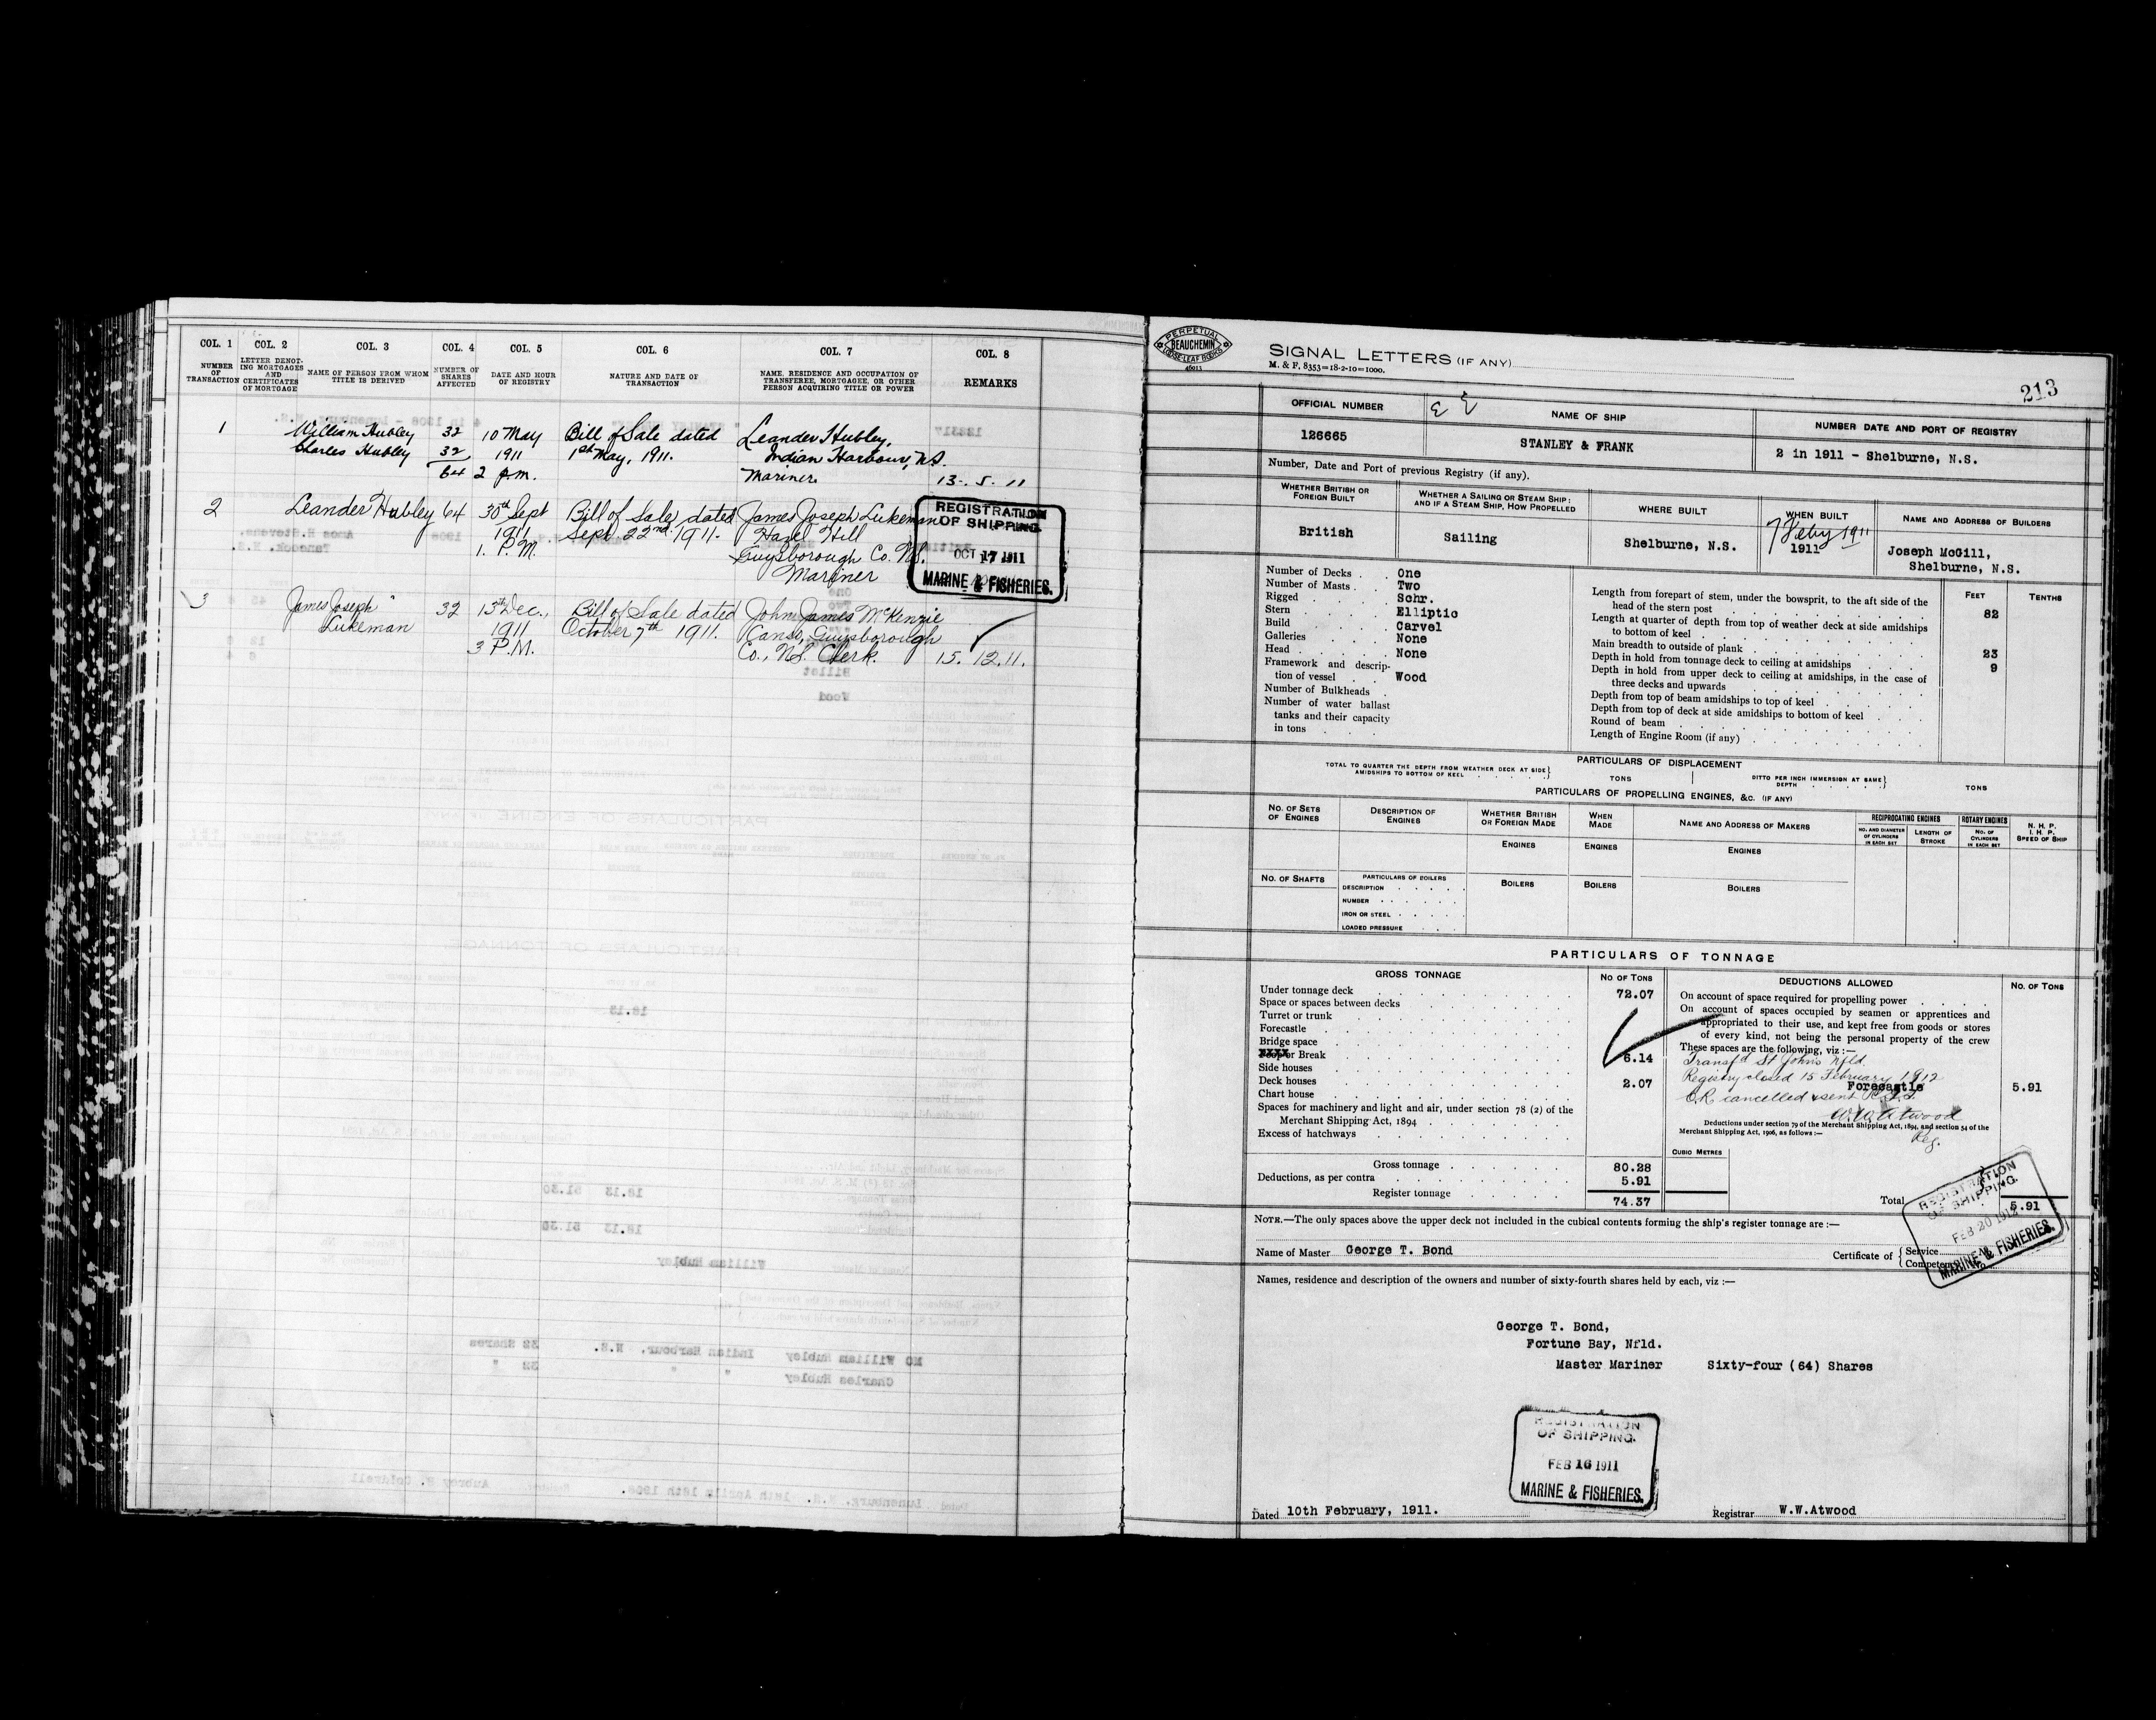 COL. 1
NUMBER OF TRANSACTION
COL. 2
LETTER DENOT-
ING MORTGAGES
AND
CERTIFICATES
OF MORTGAGE
COL. 3
NAME OF PERSON FROM WHOM
TITLE IS DERIVED
COL. 4
NUMBER OF
SHARES
AFFECTED
COL. 5
DATE AND HOUR
OF REGISTRY
COL. 6
NATURE AND DATE OF
TRANSACTION
COL. 7
NAME, RESIDENCE AND OCCUPATION OF
TRANSFEREE, MORTGAGEE, OR OTHER
PERSON ACQUIRING TITLE OR POWER
COL. 8
REMARKS
1 William Hubley 32 10 May Bill of Sale dated Leander Hubley,
Charles Hubley 32 1911 1st May, 1911. Indian Harbour, N.S.
64 2 p.m. Mariner 13. 5. 11
2 Leander Hubley 64 30th Sept Bill of Sale dated James Joseph Lukeman
1911 Sept. 22nd 1911. Hazel Hill
1. P.M. Guysborough Co. N.S.
Mariner
REGISTRATION
OF SHIPPING.
OCT 17 1911
MARINE & FISHERIES.
3 James Joseph 32 15th Dec., Bill of Sale dated John James McKenzie
Lukeman 1911 October 7th 1911. Canso, Guysborough
3 P.M. Co., N.S. Clerk. 15. 12. 11.
PERPETUAL
BEAUCHEMIN
LOOSE-LEAF BOOKS
46011
SIGNAL LETTERS (IF ANY)
M. & F. 8353=18-2-10=1000.
213
OFFICIAL NUMBER
126665
NAME OF SHIP
STANLEY & FRANK
NUMBER DATE AND PORT OF REGISTRY
2 in 1911 - Shelburne, N.S.
Number, Date and Port of previous Registry (if any).
WHETHER BRITISH OR
FOREIGN BUILT
British
WHETHER A SAILING OR STEAM SHIP:
AND IF A STEAM SHIP, HOW PROPELLED
Sailing
WHERE BUILT
Shelburne, N.S.
WHEN BUILT
7 Feby 1911
1911
NAME AND ADDRESS OF BUILDERS
Joseph McGill,
Shelburne, N.S.
Number of Decks . . One
Number of Masts . . Two
Rigged . . Schr.
Stern . . Elliptic
Build . . Carvel
Galleries . . None
Head . . None
Framework and descrip-
tion of vessel . . Wood
Number of Bulkheads .
Number of water ballast
tanks and their capacity
in tons
FEET TENTHS
Length from forepart of stem, under the bowsprit, to the aft side of the
head of the stern post 82
Length at quarter of depth from top of weather deck at side amidships
to bottom of keel
Main breadth to outside of plank 23
Depth in hold from tonnage deck to ceiling at amidships 9
Depth in hold from upper deck to ceiling at amidships, in the case of
three decks and upwards
Depth from top of beam amidships to top of keel
Depth from top of deck at side amidships to bottom of keel
Round of beam
Length of Engine Room (if any)
PARTICULARS OF DISPLACEMENT
TOTAL TO QUARTER THE DEPTH FROM WEATHER DECK AT SIDE
AMIDSHIPS TO BOTTOM OF KEEL
TONS
DITTO PER INCH IMMERSION AT SAME
DEPTH
TONS
PARTICULARS OF PROPELLING ENGINES, &C. (IF ANY)
NO. OF SETS
OF ENGINES
DESCRIPTION OF
ENGINES
WHETHER BRITISH
OR FOREIGN MADE
ENGINES
WHEN
MADE
ENGINES
NAME AND ADDRESS OF MAKERS
ENGINES
RECIPROCATING ENGINES
NO. AND DIAMETER
OF CYLINDERS
IN EACH SET
LENGTH OF
STROKE
ROTARY ENGINES
NO. OF
CYLINDERS
IN EACH SET
N. H. P.
I. H. P.
SPEED OF SHIP
NO. OF SHAFTS
PARTICULARS OF BOILERS
DESCRIPTION
NUMBER
IRON OR STEEL
LOADED PRESSURE
BOILERS
BOILERS
BOILERS
PARTICULARS OF TONNAGE
GROSS TONNAGE NO OF TONS
Under tonnage deck 72.07
Space or spaces between decks
Turret or trunk
Forecastle
Bridge space
or Break 6.14
Side houses
Deck houses 2.07
Chart house
Spaces for machinery and light and air, under section 78 (2) of the
Merchant Shipping Act, 1894
Excess of hatchways
Gross tonnage 80.28
Deductions, as per contra 5.91
Register tonnage 74.37
DEDUCTIONS ALLOWED NO. OF TONS
On account of space required for propelling power
On account of spaces occupied by seamen or apprentices and
appropriated to their use, and kept free from goods or stores
of every kind, not being the personal property of the crew
These spaces are the following, viz :—
Transfd St Johns Nfld.
Registry closed 15 February 1912
Forecastle 5.91
C.R. cancelled & sent
W.W. Atwood
Reg.
Deductions under section 79 of the Merchant Shipping Act, 1894, and section 54 of the
Merchant Shipping Act, 1906, as follows :—
CUBIC METRES
Total 5.91
REGISTRATION
OF SHIPPING.
FEB 20 1912
MARINE & FISHERIES.
NOTE.—The only spaces above the upper deck not included in the cubical contents forming the ship's register tonnage are :—
Name of Master George T. Bond
Certificate of Service
Competency No.
Names, residence and description of the owners and number of sixty-fourth shares held by each, viz :—
George T. Bond,
Fortune Bay, Nfld.
Master Mariner Sixty-four (64) Shares
REGISTRATION
OF SHIPPING.
FEB 16 1911
MARINE & FISHERIES.
Dated 10th February, 1911.
Registrar W.W.Atwood